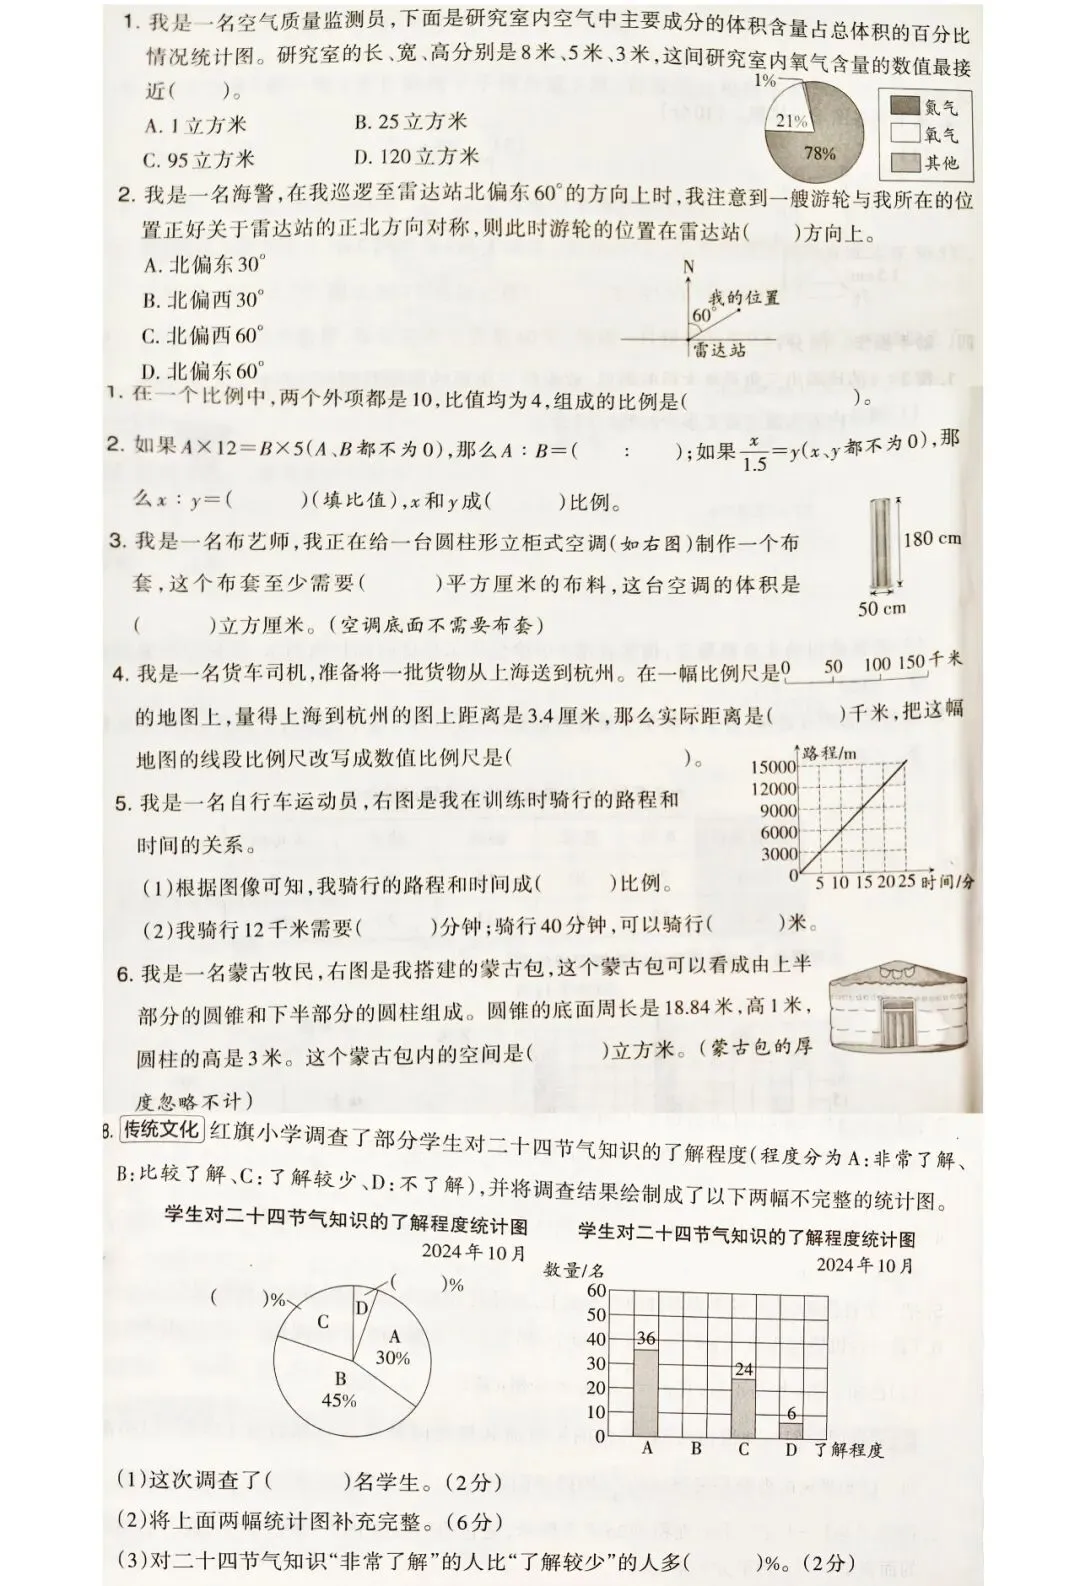 1. 我是一名空气质量监测员,下面是研究室内空气中主要成分的体积含量占总体积的百分比
情况统计图。研究室的长、宽、高分别是8米、5米、3米,这间研究室内氧气含量的数值最接
近(　　)。
1%
21%
78%
氮气
氧气
其他
A. 1立方米　　B. 25立方米
C. 95立方米　　D. 120立方米
2. 我是一名海警,在我巡逻至雷达站北偏东60°的方向上时,我注意到一艘游轮与我所在的位
置正好关于雷达站的正北方向对称,则此时游轮的位置在雷达站(　　)方向上。
A. 北偏东30°
B. 北偏西30°
C. 北偏西60°
D. 北偏东60°
N
我的位置
60°
雷达站
1. 在一个比例中,两个外项都是10,比值均为4,组成的比例是(　　)。
2. 如果A×12=B×5(A、B都不为0),那么A:B=(　:　);如果x/1.5=y(x、y都不为0),那
么x:y=(　　)(填比值),x和y成(　　)比例。
3. 我是一名布艺师,我正在给一台圆柱形立柜式空调(如右图)制作一个布
套,这个布套至少需要(　　)平方厘米的布料,这台空调的体积是
(　　)立方厘米。(空调底面不需要布套)
180 cm
50 cm
4. 我是一名货车司机,准备将一批货物从上海送到杭州。在一幅比例尺是0 50 100 150千米
的地图上,量得上海到杭州的图上距离是3.4厘米,那么实际距离是(　　)千米,把这幅
地图的线段比例尺改写成数值比例尺是(　　)。
5. 我是一名自行车运动员,右图是我在训练时骑行的路程和
时间的关系。
(1)根据图像可知,我骑行的路程和时间成(　　)比例。
(2)我骑行12千米需要(　　)分钟;骑行40分钟,可以骑行(　　)米。
路程/m
15000
12000
9000
6000
3000
0
5 10 15 20 25 时间/分
6. 我是一名蒙古牧民,右图是我搭建的蒙古包,这个蒙古包可以看成由上半
部分的圆锥和下半部分的圆柱组成。圆锥的底面周长是18.84米,高1米,
圆柱的高是3米。这个蒙古包内的空间是(　　)立方米。(蒙古包的厚
度忽略不计)
8. 传统文化 红旗小学调查了部分学生对二十四节气知识的了解程度(程度分为A:非常了解、
B:比较了解、C:了解较少、D:不了解),并将调查结果绘制成了以下两幅不完整的统计图。
学生对二十四节气知识的了解程度统计图
2024年10月
(　　)%
(　　)%
C
D
A
30%
B
45%
学生对二十四节气知识的了解程度统计图
2024年10月
数量/名
60
50
40
30
20
10
0
36
24
6
A B C D 了解程度
(1)这次调查了(　　)名学生。(2分)
(2)将上面两幅统计图补充完整。(6分)
(3)对二十四节气知识“非常了解”的人比“了解较少”的人多(　　)%。(2分)